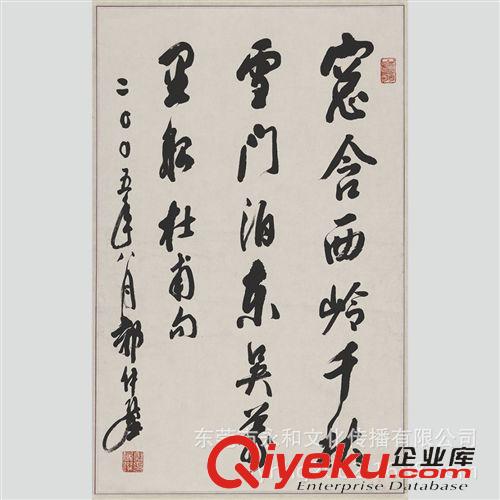 窓含西岭千秋
雪门泊东吴萬
里船杜甫句
二〇〇五年八月郭
东莞市永和文化传播有限公司
Qiyeku.com 企业库
Enterprise Database